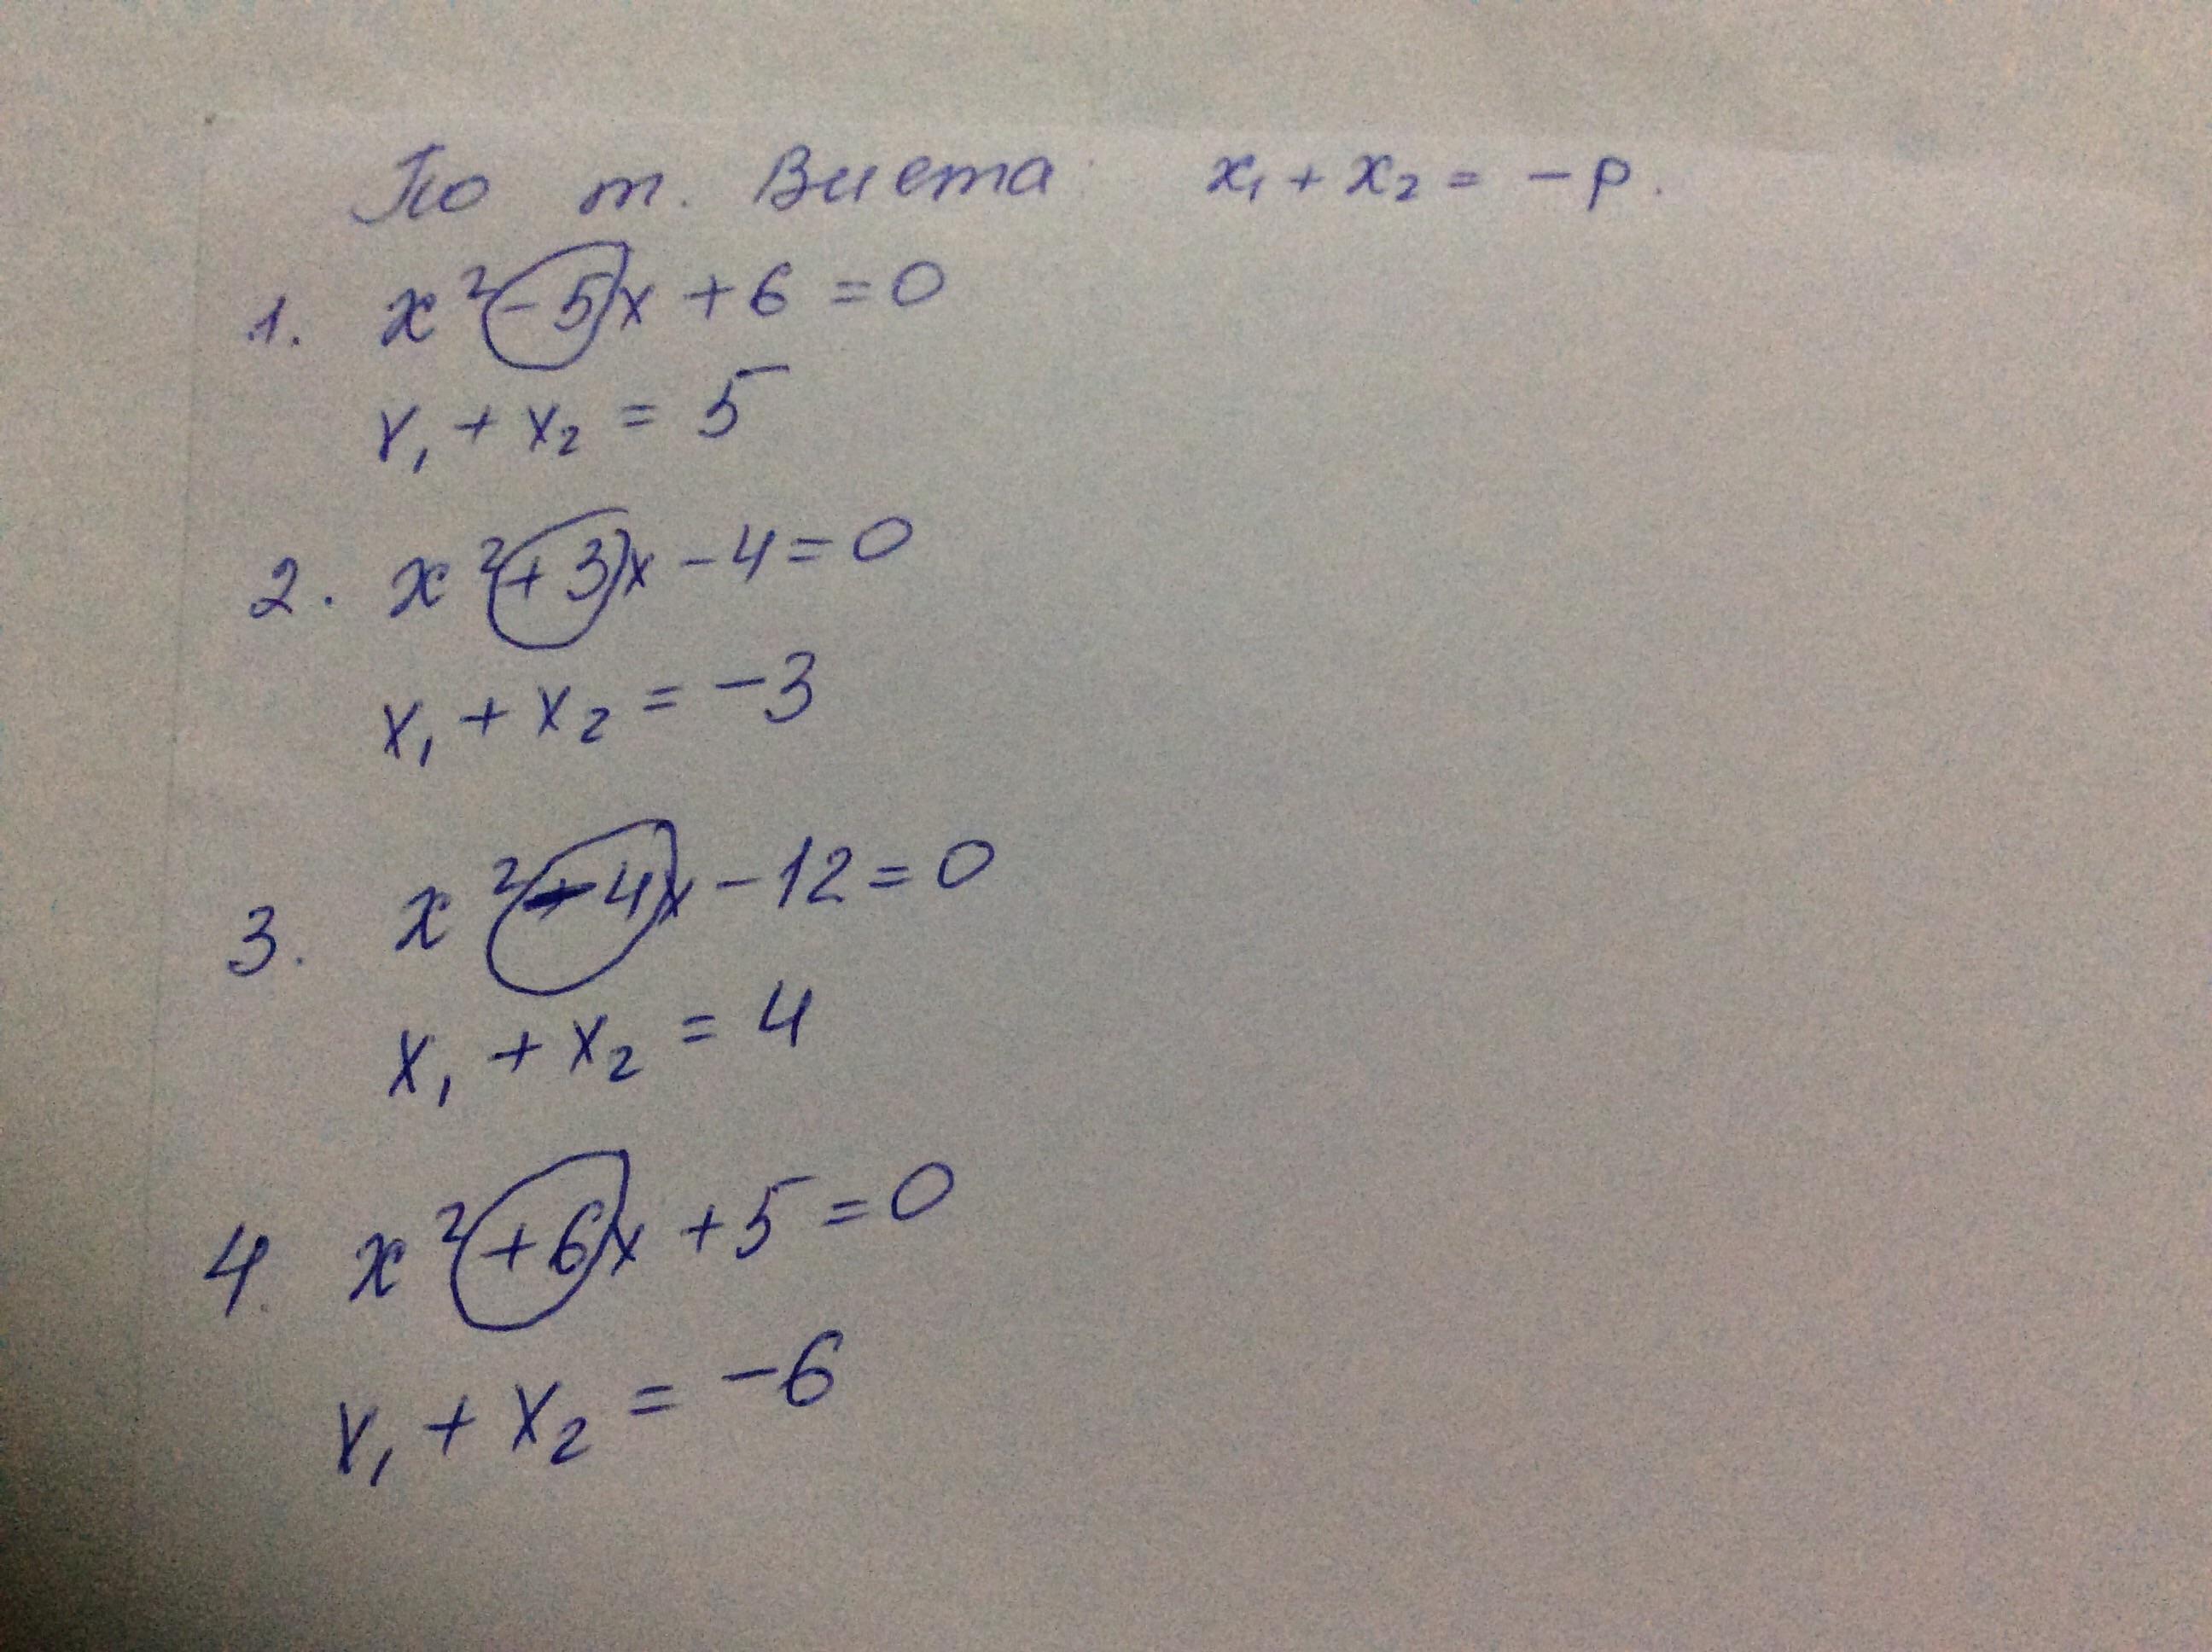 По т. Виета x₁ + x₂ = -p.
1. x² - 5x + 6 = 0
x₁ + x₂ = 5
2. x² + 3x - 4 = 0
x₁ + x₂ = -3
3. x² - 4x - 12 = 0
x₁ + x₂ = 4
4. x² + 6x + 5 = 0
x₁ + x₂ = -6